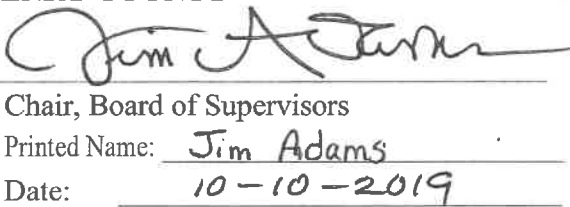 Jim A Adams
Chair, Board of Supervisors
Printed Name: Jim Adams
Date: 10-10-2019